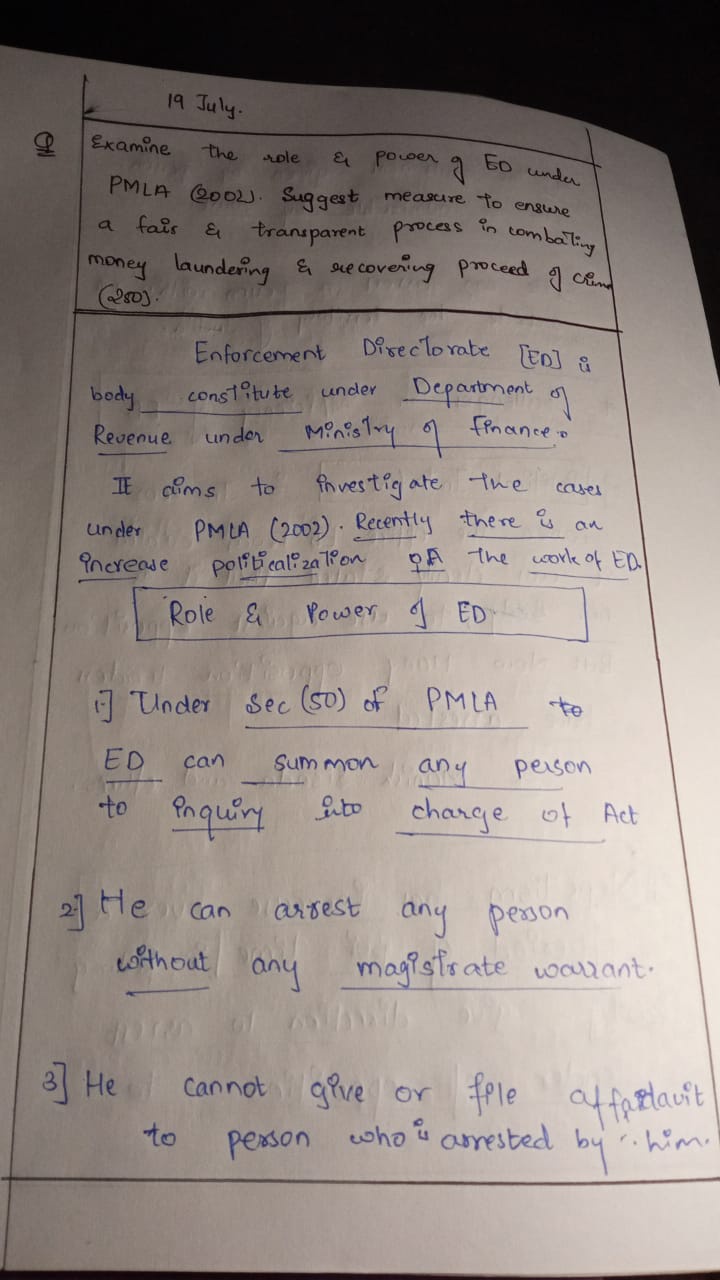 19 July.
Q Examine the role & power of ED under
PMLA (2002). Suggest measure to ensure
a fair & transparent process in combating
money laundering & recovering proceed of crime
(250).
Enforcement Directorate [ED] is
body constitute under Department of
Revenue under Ministry of Finance.
It aims to investigate the cases
under PMLA (2002). Recently there is an
increase politicalization of the work of ED.
Role & Power of ED
1.] Under Sec (50) of PMLA to
ED can summon any person
to inquiry into charge of Act
2.] He can arrest any person
without any magistrate warrant.
3] He cannot give or file affidavit
to person who is arrested by him.